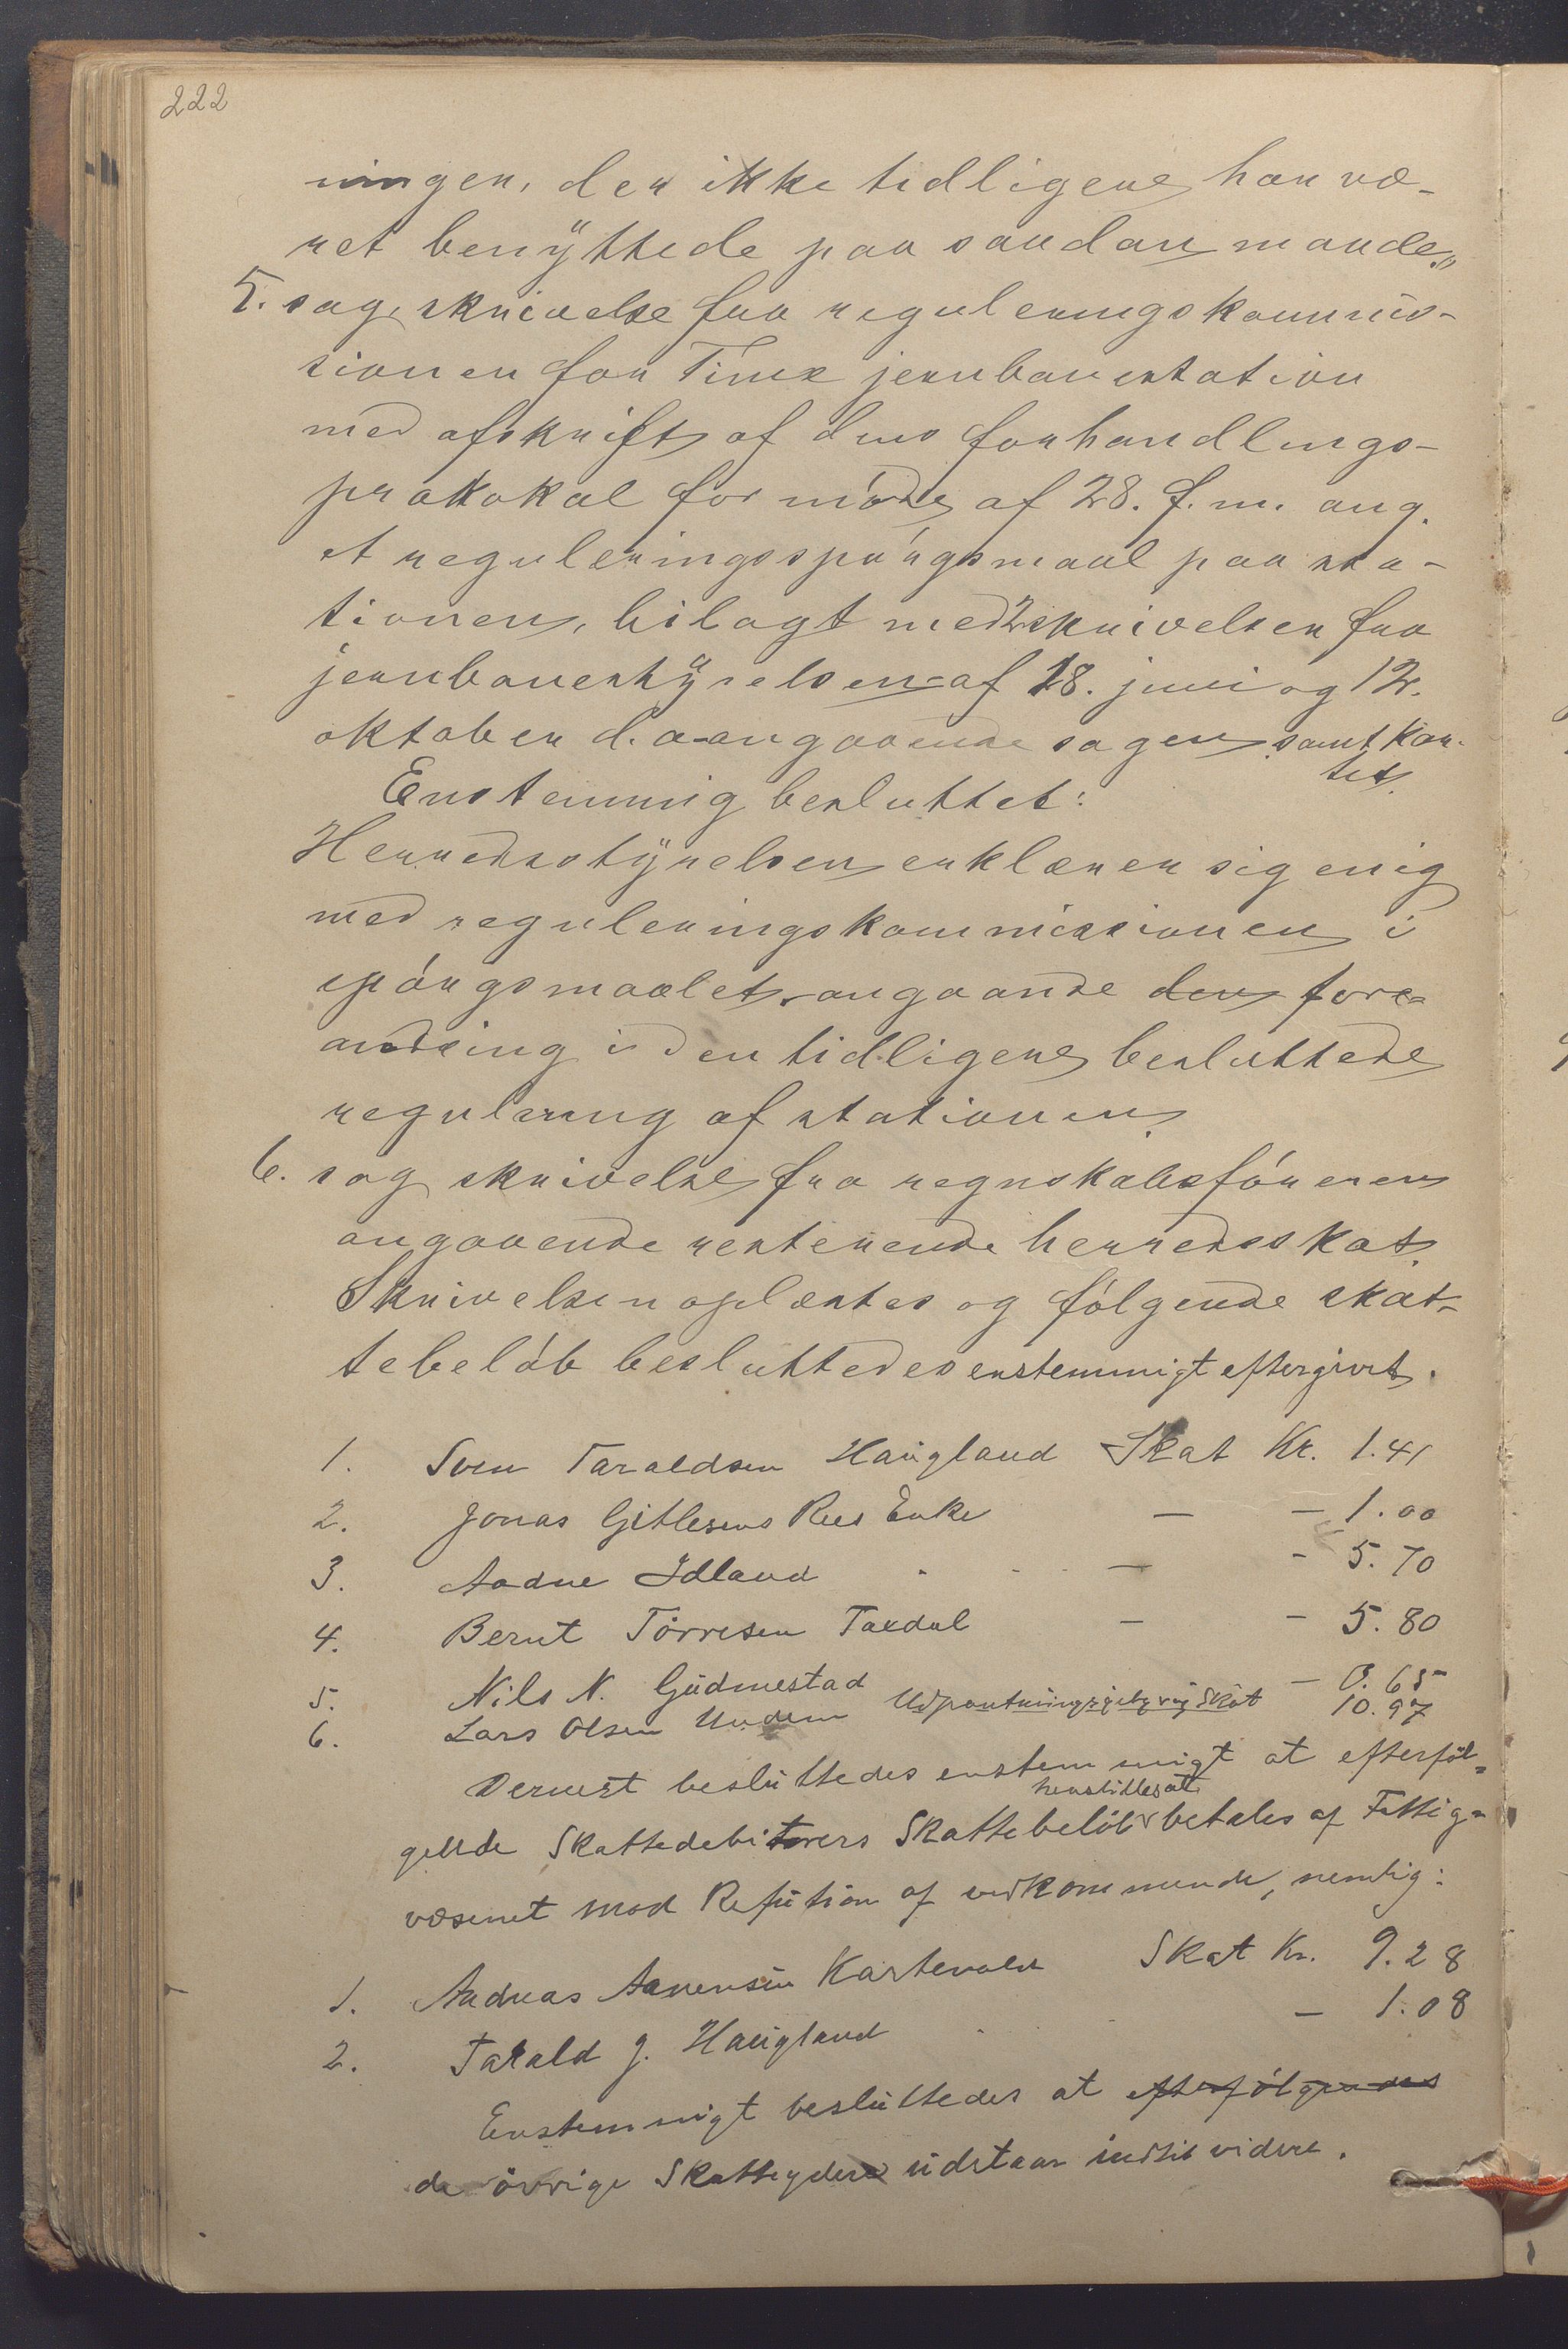 222
ningen, der ikke tidligere har væ-
ret benyttede paa saadan maade."
5. sag, skrivelse fra reguleringskommis-
sionen for Time jernbanestation
med afskrift af dens forhandlings-
protokol for möde af 28. f.m. ang.
et reguleringsspörgsmaal paa sta-
tionen, bilagt med 2 skrivelser fra
jernbanestyrelsen af 18. juni og 12.
oktober d.a. angaaende sagen samt kar-
tet.
Enstemmig besluttet:
Herredsstyrelsen erklærer sig enig
med reguleringskommissionen i
spörgsmaalet angaande den fore-
andring i den tidligere besluttede
regulering af stationen.
6. sag skrivelse fra regnskabsföreren
angaaende resterende herredsskat.
Skrivelsen oplæstes og fölgende skat-
tebelöb besluttedes enstemmigt eftergivet.
1. Sven Taraldsen Haugland Skat Kr. 1.41
2. Jonas Gitlesens Rees Enke — — 1.00
3. Aadne Idland — - 5.70
4. Bernt Törresen Taxdal — - 5.80
5. Nils N. Gudmestad — 0.65
6. Lars Olsen Undem Udpantningsgeby og Skat 10.97
Dernest besluttedes enstemmigt at efterföl-
henstilles at
gende Skattedebitorers Skattebelöb betales af Fattig-
væsenet mod Refution af vedkommende, nemlig:
1. Andreas Aanensen Kartevold Skat Kr. 9.28
2. Tarald J. Haugland — 1.08
Enstemmigt besluttedes at efterfölgendes
de övrige Skatteydere udstaar indtil videre.